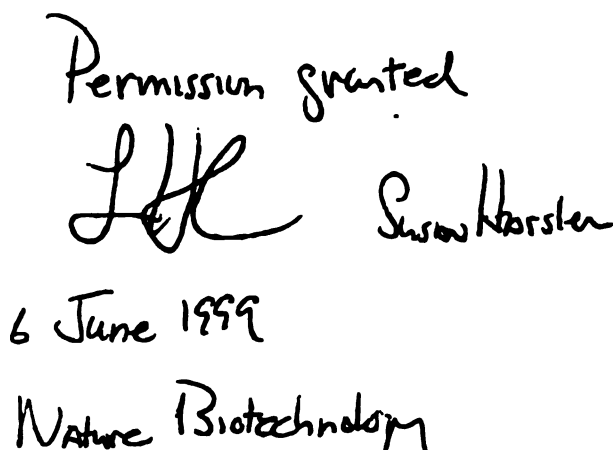 Permission granted
Susan Hassler
6 June 1999
Nature Biotechnology